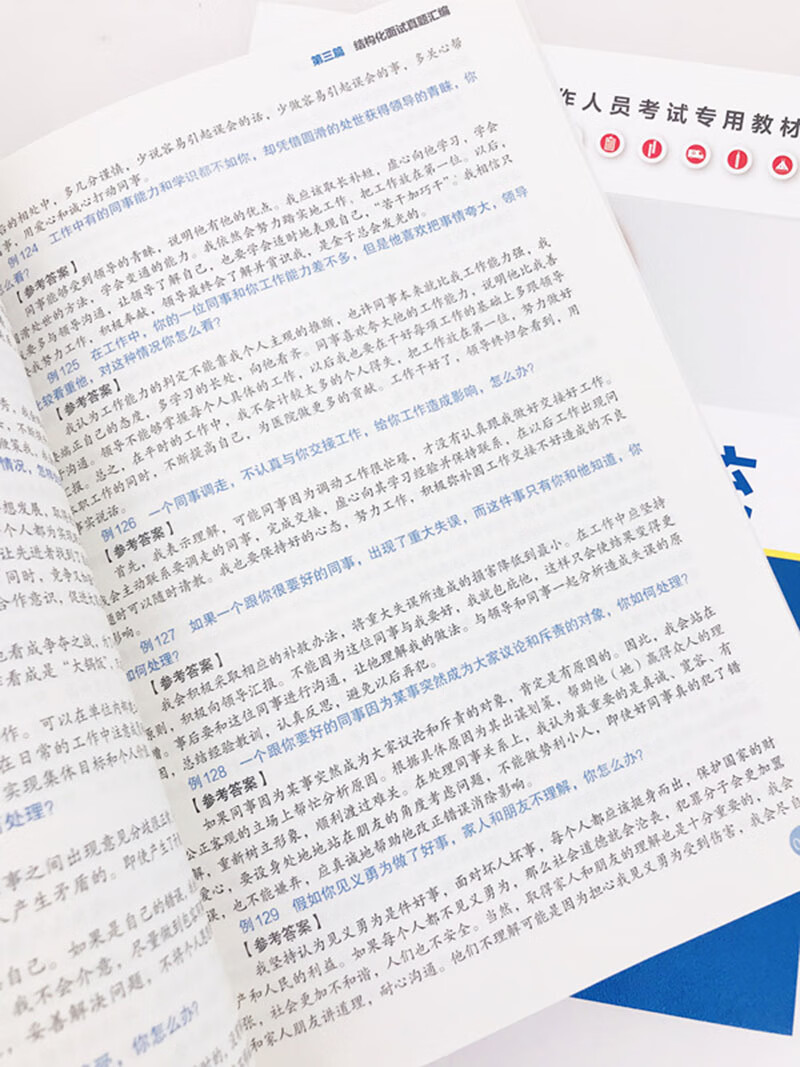 第三篇 结构化面试真题汇编
后的相处中，多几分谨慎，少说容易引起误会的话，少做容易引起误会的事，多关心帮
事，用爱心和诚心打动同事。
例 124 工作中有的同事能力和学识都不如你，却凭借圆滑的处世获得领导的青睐，你
怎么看？
【参考答案】
同事能够受到领导的青睐，说明他有他的优点。我应该取长补短，虚心向他学习，学会
滑处世的方法，学会变通的能力。我依然会努力踏实地工作，把工作放在第一位。以后，
要多与领导沟通，让领导了解自己，也要学会适时地表现自己，“苦干加巧干”。我相信只
我努力工作，积极奉献，领导最终会了解并赏识我，是金子总会发光的。
例 125 在工作中，你的一位同事和你工作能力差不多，但是他喜欢把事情夸大，领导
比较看重他，对这种情况你怎么看？
【参考答案】
我认为工作能力的判定不能靠我个人主观的推断，也许同事本来就比我工作能力强，我
端正自己的态度，多学习的长处，向他看齐。同事喜欢夸大他的工作能力，说明他比我善
沟通。领导不能够掌握每个人具体的工作，以后我也要在干好每项工作的基础上多跟领导
报。总之，在平时的工作中，我不会计较太多的个人得失，把工作放在第一位，努力做好
本职工作的同时，不断提高自己，为医院做更多的贡献。工作干好了，领导终归会看到，用
事实说话。
例 126 一个同事调走，不认真与你交接工作，给你工作造成影响，怎么办？
【参考答案】
首先，我表示理解，可能同事因为调动工作很忙碌，才没有认真跟我做好交接好工作。
会主动联系要调走的同事，完成交接，虚心向其学习经验并保持联系，在以后工作出现问
随时可以随时请教。我也要保持好的心态，努力工作，积极弥补因工作交接不好造成的不良
影响。
例 127 如果一个跟你很要好的同事，出现了重大失误，而这件事只有你和他知道，你
如何处理？
【参考答案】
我会积极采取相应的补救办法，将重大失误所造成的损害降低到最小。在工作中应坚持
原则，积极向领导汇报。不能因为这位同事与我要好，我就包庇他，这样只会使结果变得更
事后要和这位同事进行沟通，让他理解我的做法。与领导和同事一起分析造成失误的原
因，总结经验教训，认真反思，避免以后再犯。
例 128 一个跟你要好的同事因为某事突然成为大家议论和斥责的对象，你如何处理？
【参考答案】
如果同事因为某事突然成为大家议论和斥责的对象，肯定是有原因的。因此，我会站在
公正客观的立场上帮忙分析原因。根据具体原因为其出谋划策，帮助他（她）赢得众人的理
解，重新树立形象，顺利渡过难关。在处理同事关系上，我认为最重要的是真诚、宽容、有
爱心，要设身处地地站在朋友的角度考虑问题，不能做势利小人，即使好同事真的犯了错
误，也不能嫌弃，应真诚地帮助他改正错误消除影响。
例 129 假如你见义勇为做了好事，家人和朋友不理解，你怎么办？
【参考答案】
我坚持认为见义勇为是件好事，面对坏人坏事，每个人都应该挺身而出，保护国家的财
产和人民的利益。如果每个人都不见义勇为，那么社会道德就会沦丧，犯罪分子会更加嚣
张，社会更加不和谐，人们也不安全。当然，取得家人和朋友的理解也是十分重要的，我会
和家人朋友讲道理，耐心沟通。他们不理解可能是因为担心我见义勇为受到伤害，我会尽自
作人员考试专用教材
想发展，取
个人都为荣
让先进者
同时，竞争又
合作意识，促进
看成争夺之战，
看成是“大锅饭”，
作。可以在单位内部
在日常的工作中注意
实现集体目标和个人
处理？
事之间出现意见分歧很正
产生矛盾的。即使产生了
自己。如果是自己的错误，
我不会介意，尽量做到包
妥善解决问题，不将个人
你怎么办？